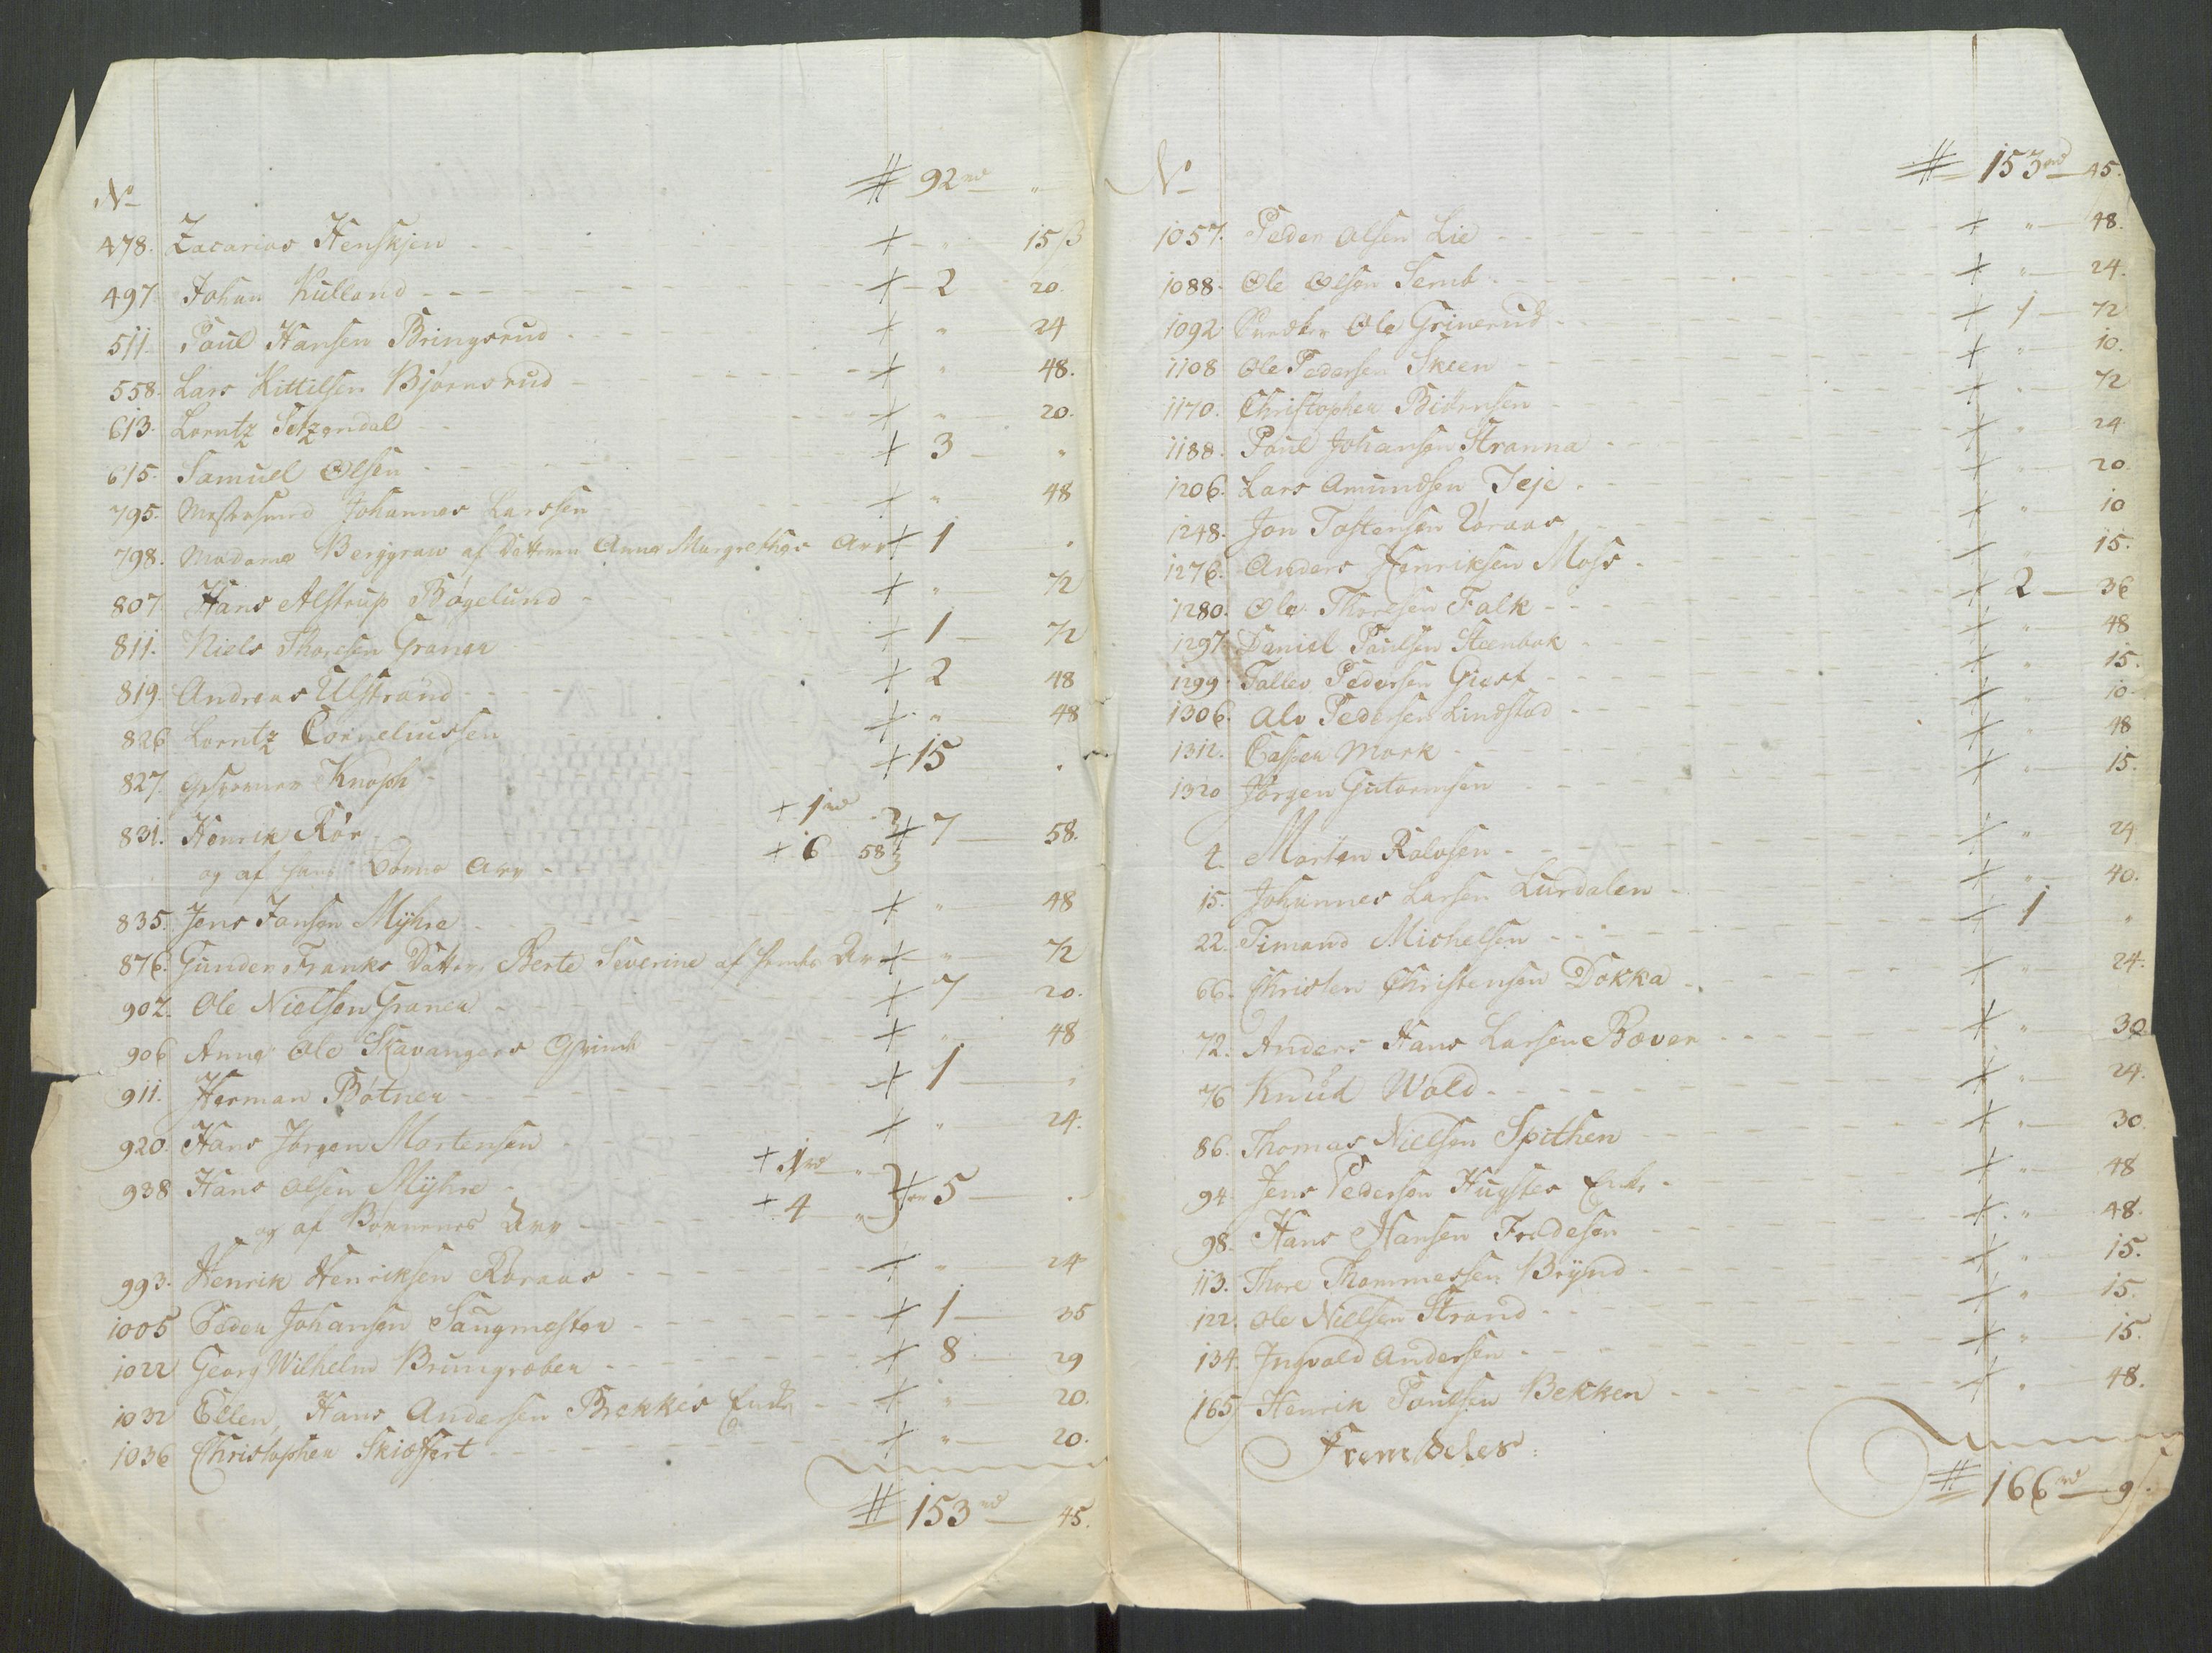 No # 92 rd "
478. Zacarias Henskjen + " 15 ß
497. Johan Kulland + 2 20.
511. Paul Hansen Bringsrud + " 24
558. Lars Kittilsen Bjørnsrud + " 48.
613. Lorntz Setzendal + " 20.
615. Samuel Olsen + 3 "
795. Mestersmed Johannes Larssen + " 48
798. Madame Berggraw af Datteren Anna Margrethes Arv + 1 "
807 Hans Alstrup Bøgelund + " 72
811. Niels Thoresen Graner + 1 72
819. Andreas Ulstrand + 2 48
826 Lorntz Corneliussen + " 48
827. Knoph + 15 "
831. Henrik Rör + 1 rd
og af hans Børns Arv + 6 58 } + 7 58.
835. Jens Jansen Myhre + " 48
876. Gunder Franks Datter Berte Severine af Arv + " 72
902. Ole Nielsen Graner + 7 20.
906 Anne Ole Skavangers + " 48
911. Herman Bøtner + 1 "
920. Hans Jørgen Mortensen + " 24.
938 Hans Olsen Myhre + 1 rd "
og af Børnenes Arv + 4 " } + 5 "
993. Henrik Henriksen Roraas + " 24
1005 Peder Johansen Saugmester + 1 35
1022 Georg Wilhelm Brungraber + 8 29
1032 Ellen, Hans Andersen Brekkes Enke + " 20.
1036 Christopher Skiøffert + " 20.
# 153 rd 45.
No # 153 rd 45.
1057. Peder Olsen Lie + " 48.
1088. Ole Olsen Semb + " 24.
1092 Ole Grinerud + 1 72
1108 Ole Pedersen Skeen + " 10.
1170. Christopher Biørnsen + " 72
1188. Paul Johansen Stranna + " 24
1206. Lars Amundsen Teje + " 20.
1248. Jon Tostensen Roraas + " 10
1276. Anders Henriksen Moss + " 15.
1280. Ole Thoresen Falk + 2 36
1297. Daniel Paulsen Steenbak + " 48
1299. Tallev Pedersen Giest + " 15.
1306. Alv Pedersen Lindstad + " 10.
1312. Casper Mork + " 48
1320 Jørgen Gutormsen + " 15.
2. Morten Rolvsen + " 24
15. Johannes Larsen Lurdalen + " 40.
22. Timand Michelsen + 1 "
66. Christen Christensen Dokka + " 24.
72. Anders Hans Larsen Bæver + " 30
76 Knud Wold + " 24.
86. Thomas Nielsen Spithen + " 30.
94. Jens Pedersen Huystes Enke + " 48
98. Hans Hansen Fredesen + " 48.
113. Thore Thommessen Brynd + " 15.
122. Ole Nielsen Strand + " 15.
134. Ingvald Andersen + " 15.
165. Henrik Poulsen Bekken + " 48.
Fremdeles: # 166 rd 9 ß.